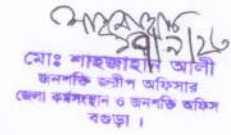 মোঃ শাহজাহান আলী
জনশক্তি জরীপ অফিসার
জেলা কর্মসংস্থান ও জনশক্তি অফিস
বগুড়া ।